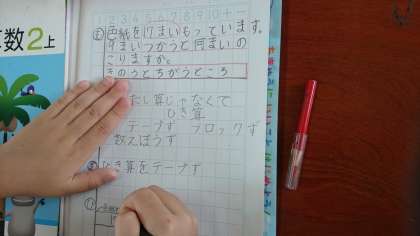 算数2上
1 2 3 4 5 6 7 8 9 10 十 一
も 色紙を17まいもっています。
9まいつかうと何まいの
こりますか。
きのうとちがうところ
たし算じゃなくて
ひき算
テープず ブロックず
数えぼうず
ひき算をテープず